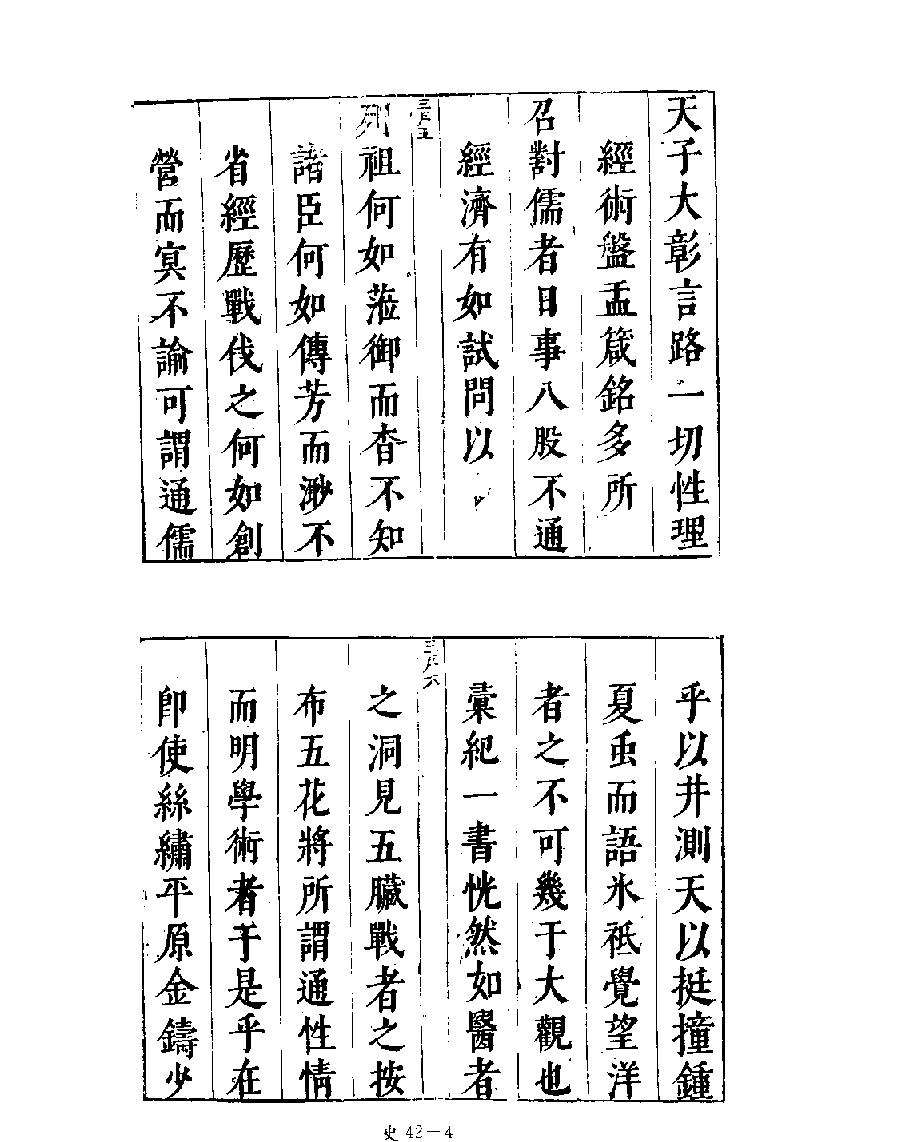 天子大彰言路一切性理
經術盤盂箴銘多所
召對儒者日事八股不通
經濟有如試問以
列祖何如蒞御而杳不知
諸臣何如傳芳而渺不
省經歷戰伐之何如創
營而冥不諭可謂通儒
乎以井測天以挺撞鍾
夏虫而語氷祗覺望洋
者之不可幾于大觀也
彚紀一書恍然如醫者
之洞見五臟戰者之按
布五花將所謂通性情
而明學術者于是乎在
即使絲繡平原金鑄少
史 42－4